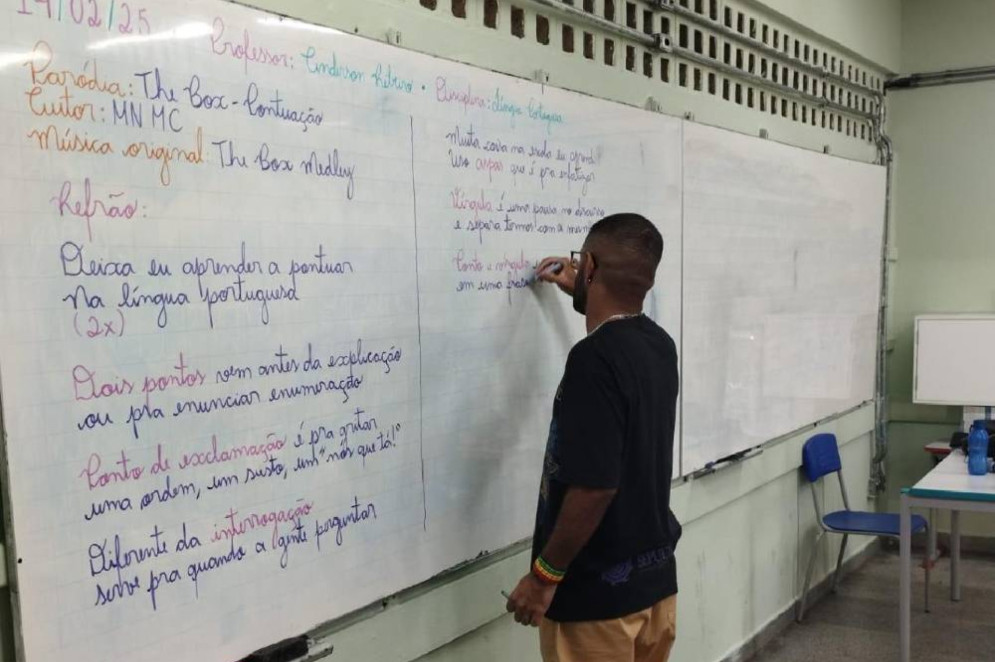 14/02/25
Professor: Anderson Ribeiro • Disciplina: Língua Portuguesa
Paródia: The Box - Pontuação
Autor: MN MC
Música original: The Box Medley
Refrão:
Deixa eu aprender a pontuar
Na língua portuguesa
(2x)
Dois pontos vem antes da explicação
ou pra enunciar enumeração
Ponto de exclamação é pra gritar
uma ordem, um susto, um "nós que tá!"
Diferente da interrogação
serve pra quando a gente perguntar
Muita coisa na escola eu aprendi
Uso aspas que é pra enfatizar
Vírgula é uma pausa no discurso
e separa termos com a mesma
Ponto e vírgula
em uma frase